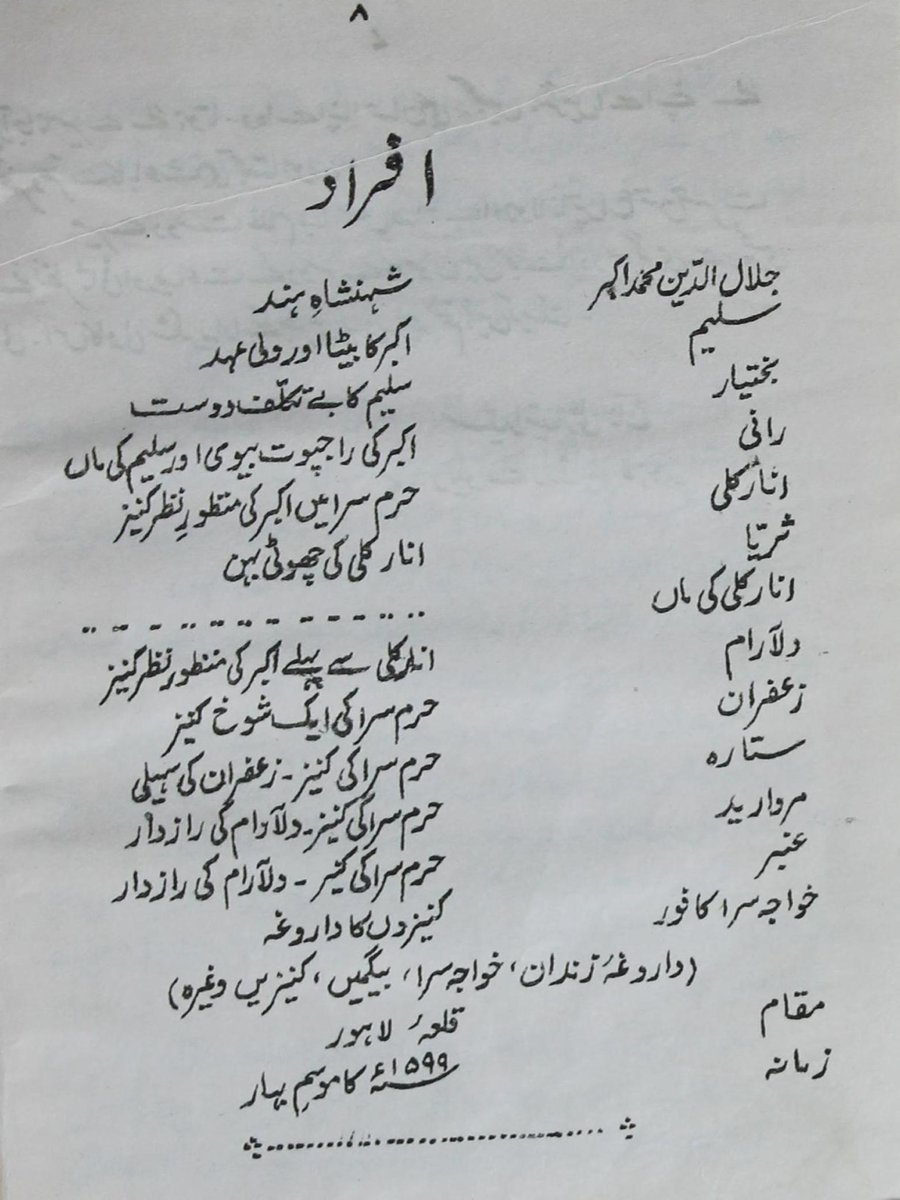 ۸
افراد
جلال الدّین محمد اکبر شہنشاہِ ہند
سلیم اکبر کا بیٹا اور ولی عہد
بختیار سلیم کا بے تکلّف دوست
رانی اکبر کی راجپوت بیوی اور سلیم کی ماں
انارکلی حرم سرا میں اکبر کی منظورِ نظر کنیز
ثریّا انارکلی کی چھوٹی بہن
انارکلی کی ماں
دلآرام انارکلی سے پہلے اکبر کی منظورِ نظر کنیز
زعفران حرم سرا کی ایک شوخ کنیز
ستارہ حرم سرا کی کنیز۔ زعفران کی سہیلی
مروارید حرم سرا کی کنیز۔ دلآرام کی رازدار
عنبر حرم سرا کی کنیز ۔ دلآرام کی رازدار
خواجہ سرا کافور کنیزوں کا داروغہ
(داروغۂ زنداں، خواجہ سرا، بیگمیں، کنیزیں وغیرہ)
مقام قلعۂ لاہور
زمانہ ۱۵۹۹ء کا موسمِ بہار